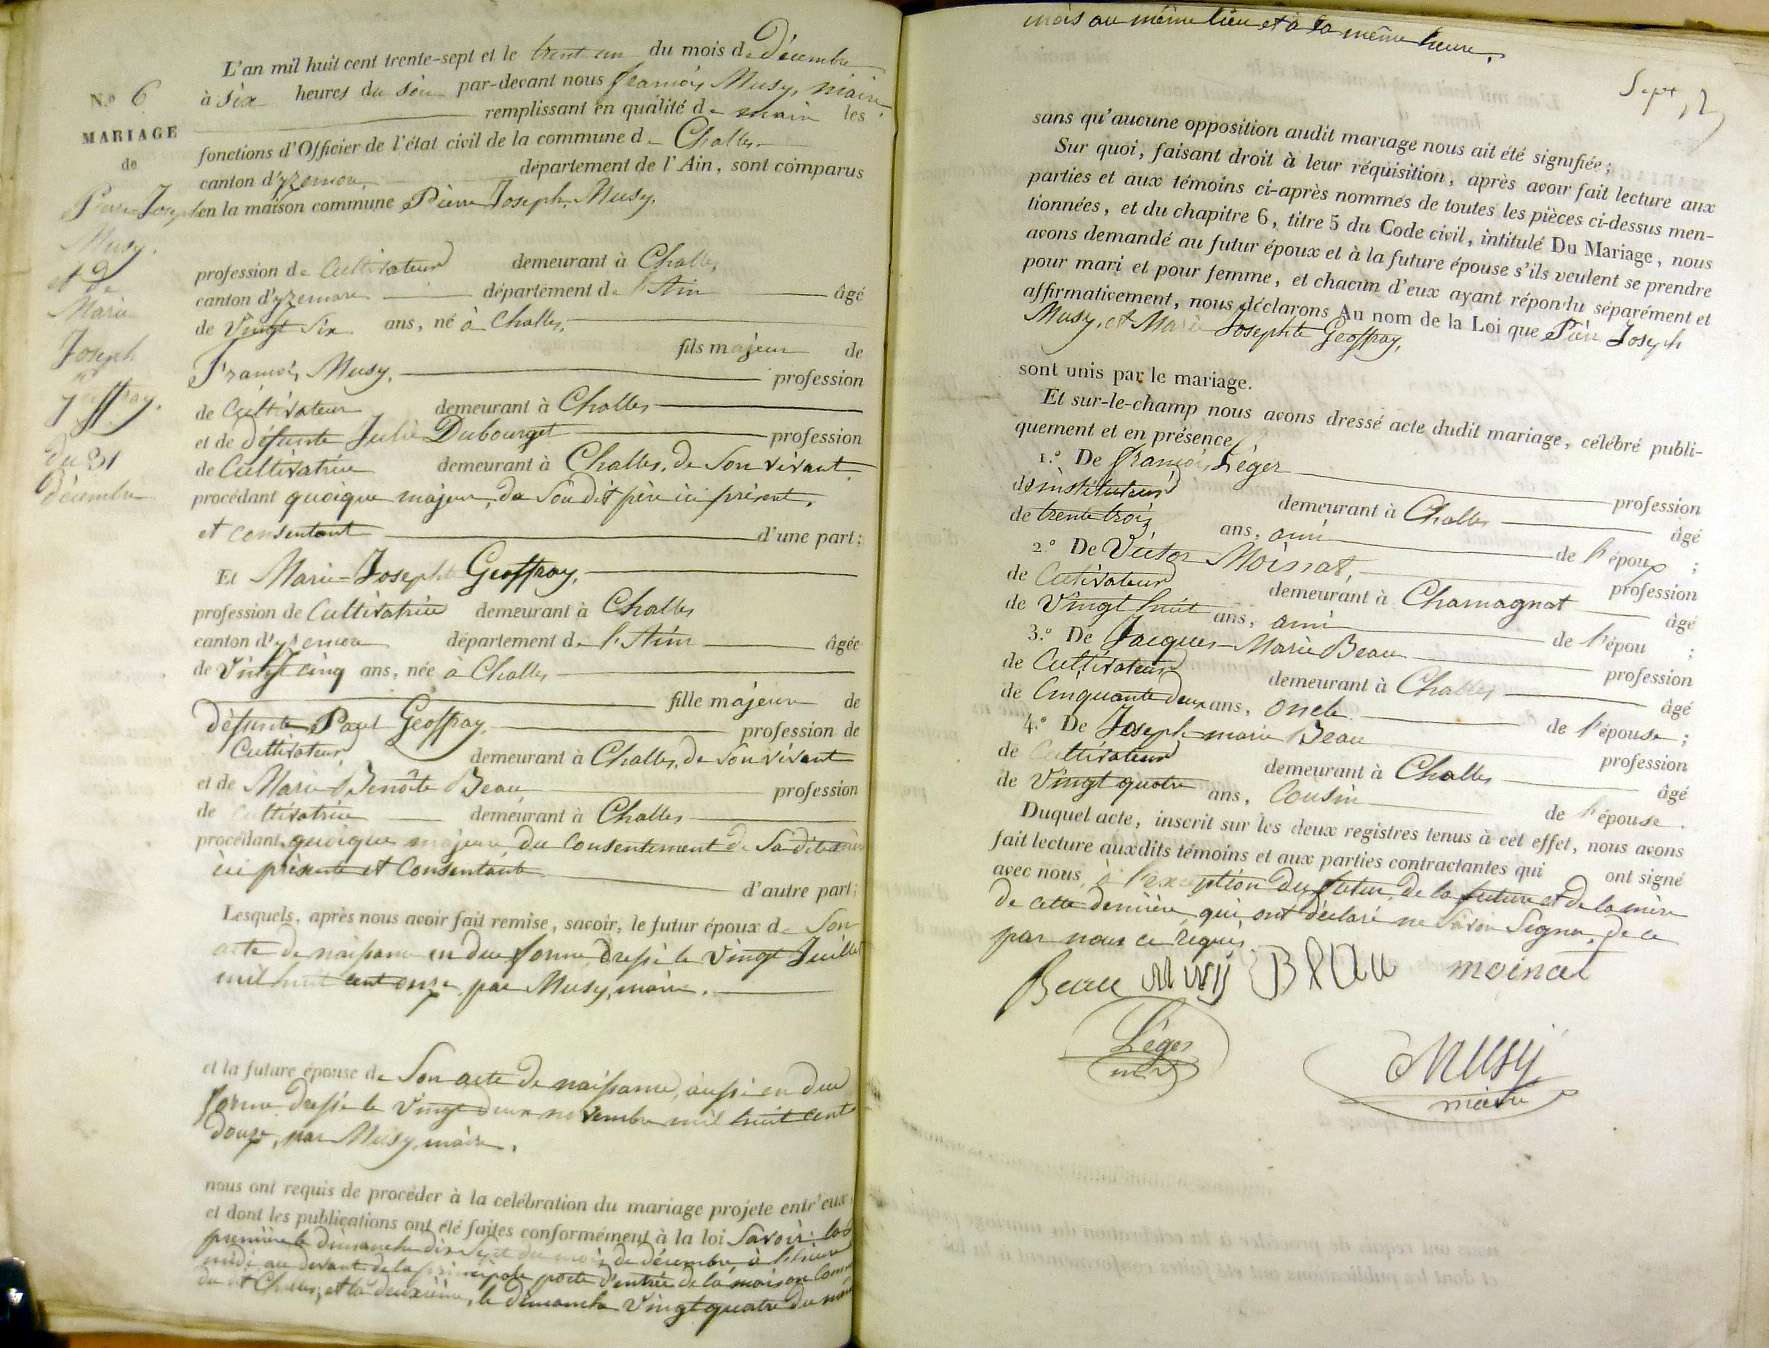 N.º 6
MARIAGE
de
Pierre Joseph
Musy.
et de
Marie
Joseph
Geoffray.
du 31
décembre
L'an mil huit cent trente-sept et le trent un du mois de décembre
à six heures du soir par-devant nous françois Musy, maire
remplissant en qualité de maire les
fonctions d'Officier de l'état civil de la commune de Challes
canton d'yzernore, département de l'Ain, sont comparus
en la maison commune Pierre Joseph Musy,
profession de Cultivateur demeurant à Challes,
canton d'yzernore département de l'Ain âgé
de Vingt Six ans, né à Challes,
fils majeur de
François Musy, profession
de Cultivateur demeurant à Challes
et de défunte Julie Dubourget profession
de Cultivatrice demeurant à Challes, de son vivant
procédant quoique majeur, de Son dit père ici présent,
et consentant d'une part;
Et Marie-Josephte Geoffray,
profession de Cultivatrice demeurant à Challes
canton d'yzernore département de l'Ain âgée
de Vingt cinq ans, née à Challes
fille majeure de
défunte Paul Geoffray, profession de
Cultivateur demeurant à Challes, de son vivant
et de Marie Benoîte Beau profession
de Cultivatrice demeurant à Challes
procédant quoique majeure du Consentement de Sa dite mère
ici présente et Consentante d'autre part;
Lesquels, après nous avoir fait remise, savoir, le futur époux de Son
acte de naissance en due forme, dressé le vingt Juillet
mil huit cent onze, par Musy, maire.
et la future épouse de Son acte de naissance, aussi en due
forme dressé le Vingt deux novembre mil huit cent
douze, par Musy, maire.
nous ont requis de procéder à la célébration du mariage projeté entr'eux,
et dont les publications ont été faites conformément à la loi Savoir: la
première le dimanche dix Sept du mois de décembre à l'heure
midi au devant de la principale porte d'entrée de la maison Com
du dit Challes, et la deuxième, le dimanche Vingt quatre du même
mois au même lieu et à la même heure.
sans qu'aucune opposition audit mariage nous ait été signifiée;
Sur quoi, faisant droit à leur réquisition, après avoir fait lecture aux
parties et aux témoins ci-après nommés de toutes les pièces ci-dessus men-
tionnées, et du chapitre 6, titre 5 du Code civil, intitulé Du Mariage, nous
avons demandé au futur époux et à la future épouse s'ils veulent se prendre
pour mari et pour femme, et chacun d'eux ayant répondu séparément et
affirmativement, nous déclarons Au nom de la Loi que Pierre Joseph
Musy, et Marie Josephte Geoffray,
sont unis par le mariage.
Et sur-le-champ nous avons dressé acte dudit mariage, célébré publi-
quement et en présence,
1.º De françois Léger profession
d'instituteur demeurant à Challes âgé
de trente trois ans, ami de l'époux ;
2.º De Victor Moinat, profession
de Cultivateur demeurant à Chamagnat âgé
de Vingt huit ans, ami de l'épou ;
3.º De Jacques-Marie Beau profession
de Cultivateur demeurant à Challes âgé
de Cinquante deux ans, oncle de l'épouse ;
4.º De Joseph-marie Beau profession
de Cultivateur demeurant à Challes âgé
de Vingt quatre ans, Cousin de l'épouse.
Duquel acte, inscrit sur les deux registres tenus à cet effet, nous avons
fait lecture auxdits témoins et aux parties contractantes qui ont signé
avec nous, à l'exception du futur, de la future et de la mère
de cette dernière, qui ont déclaré ne savoir Signer, de ce
par nous ce requis.
Beau Musy Beau moinat
Léger
Musy
maire